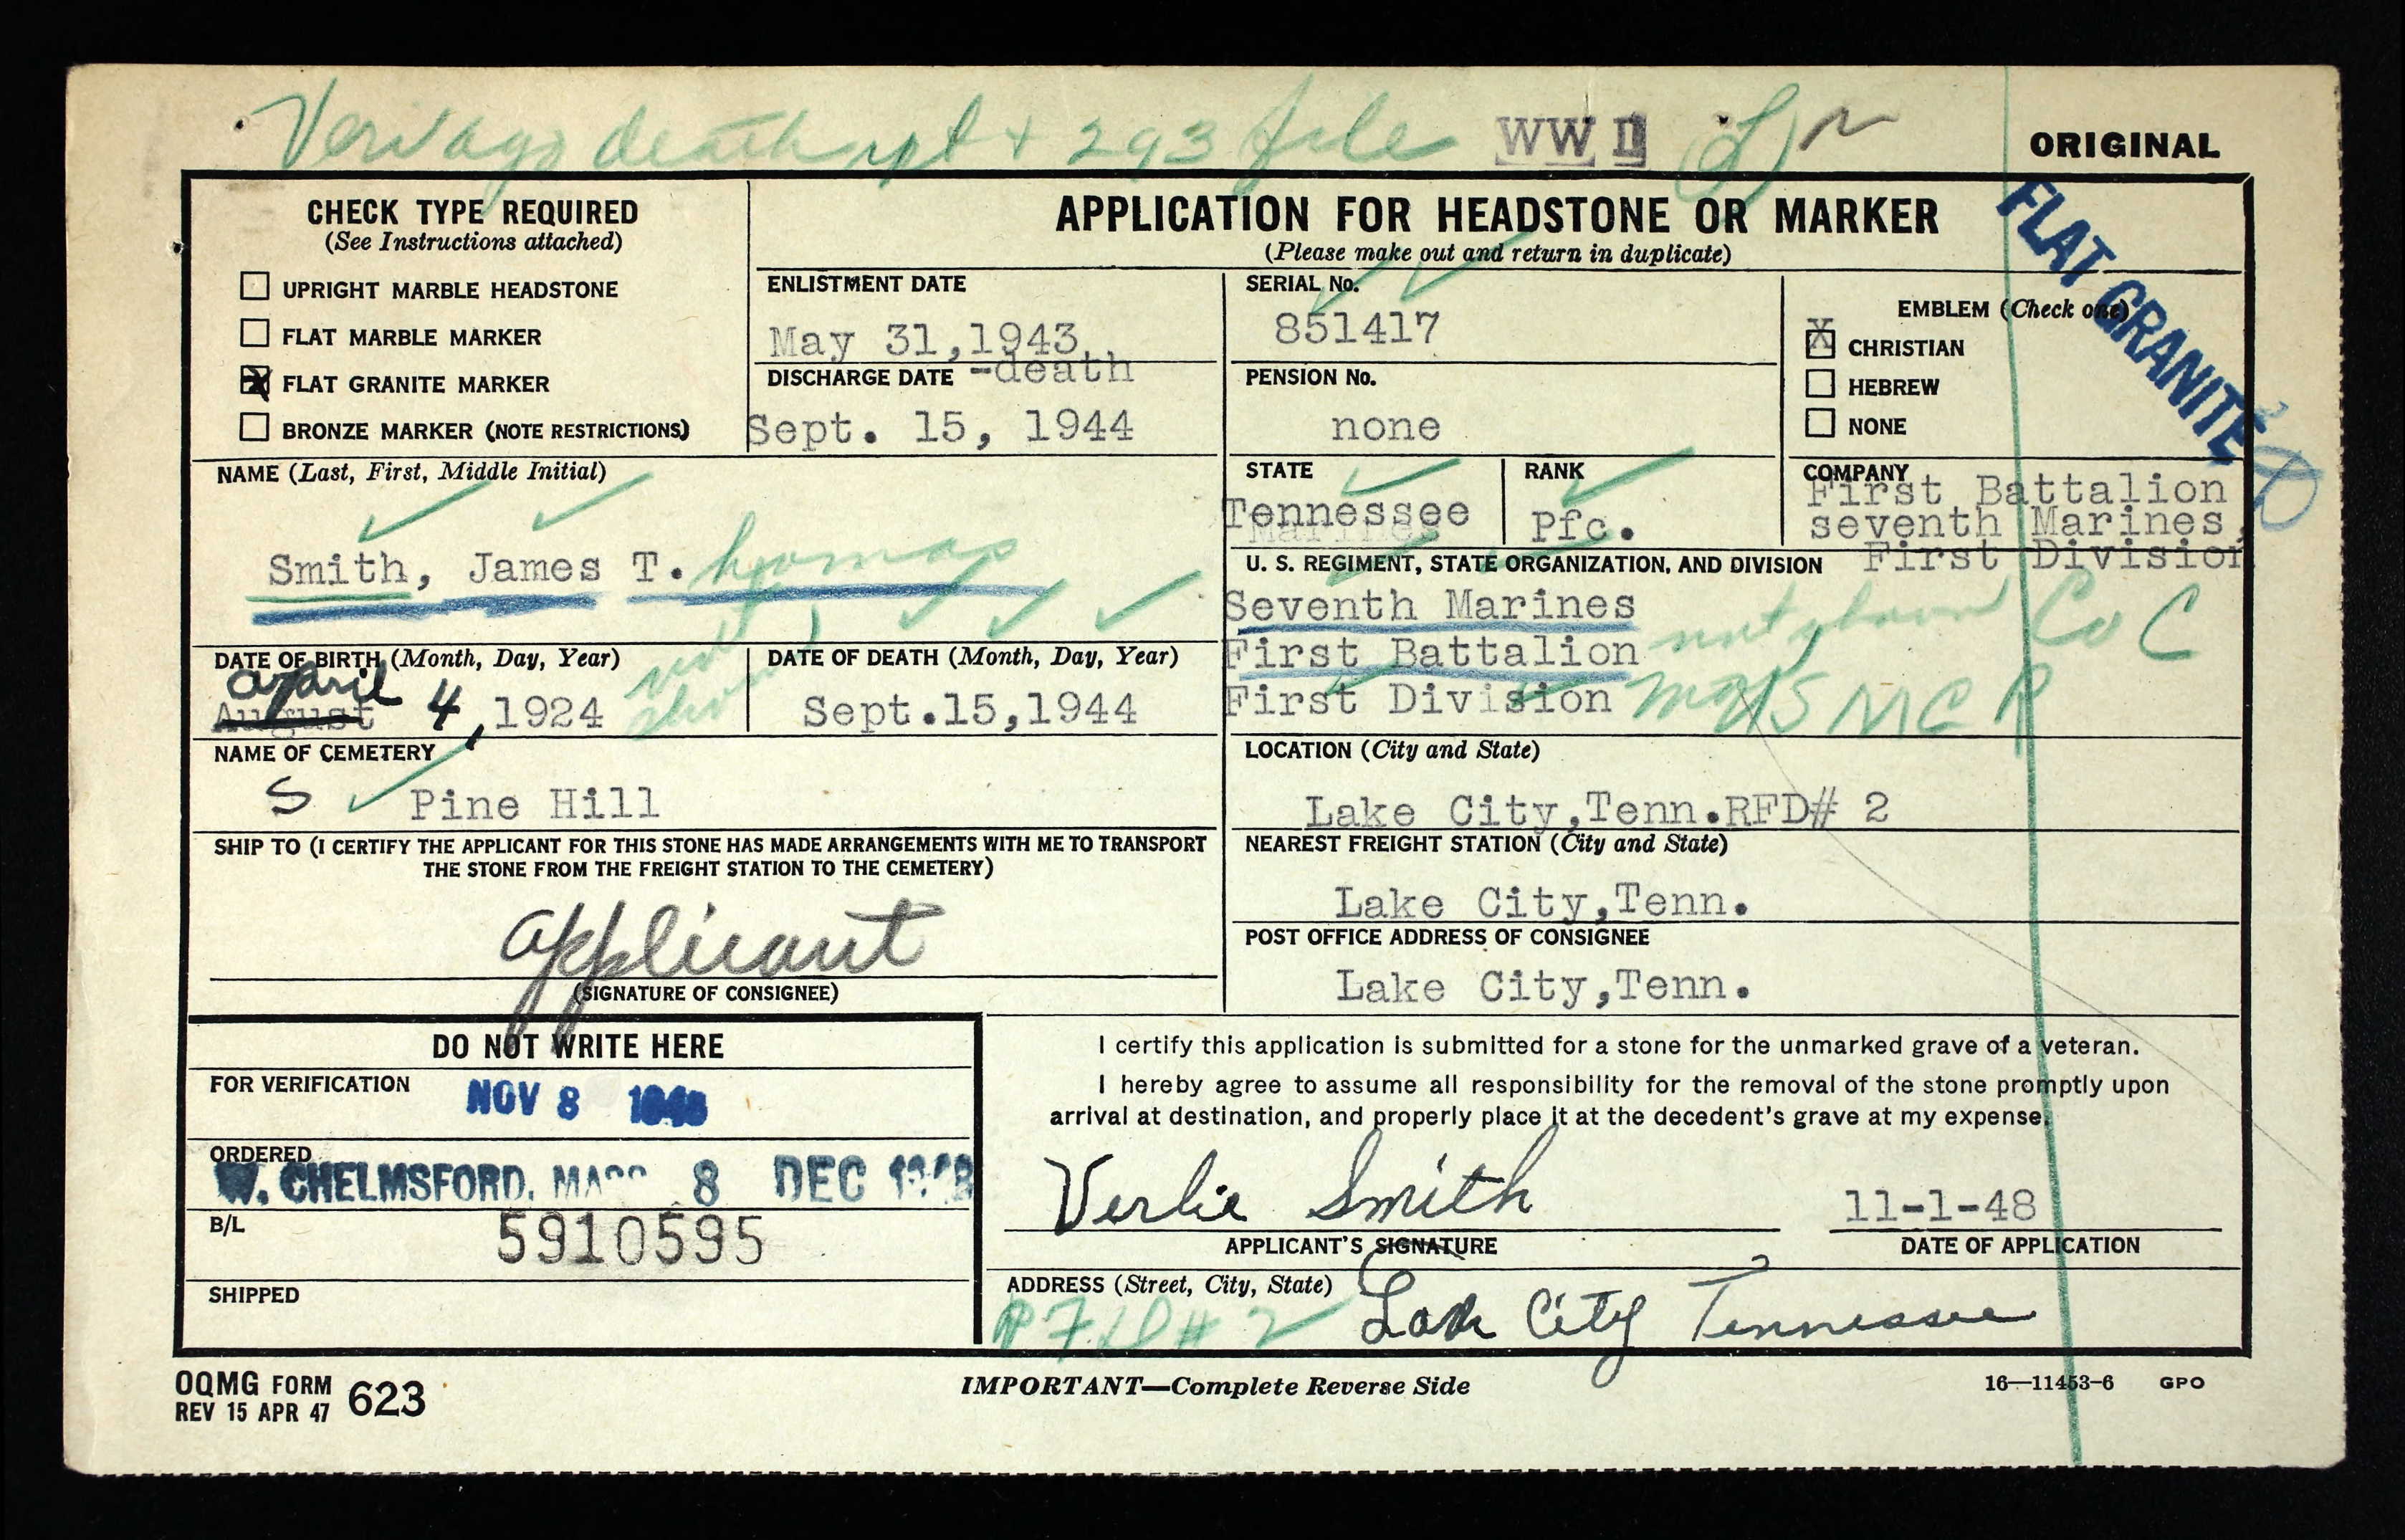 Veri ago death rpt + 293 file WW II
ORIGINAL
CHECK TYPE REQUIRED
(See Instructions attached)
UPRIGHT MARBLE HEADSTONE
FLAT MARBLE MARKER
X FLAT GRANITE MARKER
BRONZE MARKER (NOTE RESTRICTIONS)
APPLICATION FOR HEADSTONE OR MARKER
(Please make out and return in duplicate)
FLAT GRANITE
ENLISTMENT DATE
May 31,1943
DISCHARGE DATE -death
Sept. 15, 1944
SERIAL No.
851417
PENSION No.
none
EMBLEM (Check one)
X CHRISTIAN
HEBREW
NONE
NAME (Last, First, Middle Initial)
Smith, James T. homas
STATE
Tennessee
RANK
Pfc.
COMPANY
First Battalion
seventh Marines,
First Division
U. S. REGIMENT, STATE ORGANIZATION, AND DIVISION
Seventh Marines
First Battalion not shown Co C
First Division USMCR
DATE OF BIRTH (Month, Day, Year)
April
August 4, 1924 not shown
DATE OF DEATH (Month, Day, Year)
Sept.15,1944
NAME OF CEMETERY
S Pine Hill
LOCATION (City and State)
Lake City,Tenn.RFD# 2
SHIP TO (I CERTIFY THE APPLICANT FOR THIS STONE HAS MADE ARRANGEMENTS WITH ME TO TRANSPORT
THE STONE FROM THE FREIGHT STATION TO THE CEMETERY)
applicant
(SIGNATURE OF CONSIGNEE)
NEAREST FREIGHT STATION (City and State)
Lake City,Tenn.
POST OFFICE ADDRESS OF CONSIGNEE
Lake City,Tenn.
DO NOT WRITE HERE
FOR VERIFICATION NOV 8 1948
ORDERED
W. CHELMSFORD, MASS 8 DEC 1948
B/L 5910595
SHIPPED
I certify this application is submitted for a stone for the unmarked grave of a veteran.
I hereby agree to assume all responsibility for the removal of the stone promptly upon
arrival at destination, and properly place it at the decedent's grave at my expense.
Verlie Smith 11-1-48
APPLICANT'S SIGNATURE DATE OF APPLICATION
ADDRESS (Street, City, State)
RFD # 2 Lake City Tennessee
OQMG FORM 623
REV 15 APR 47
IMPORTANT—Complete Reverse Side
16—11453-6 GPO